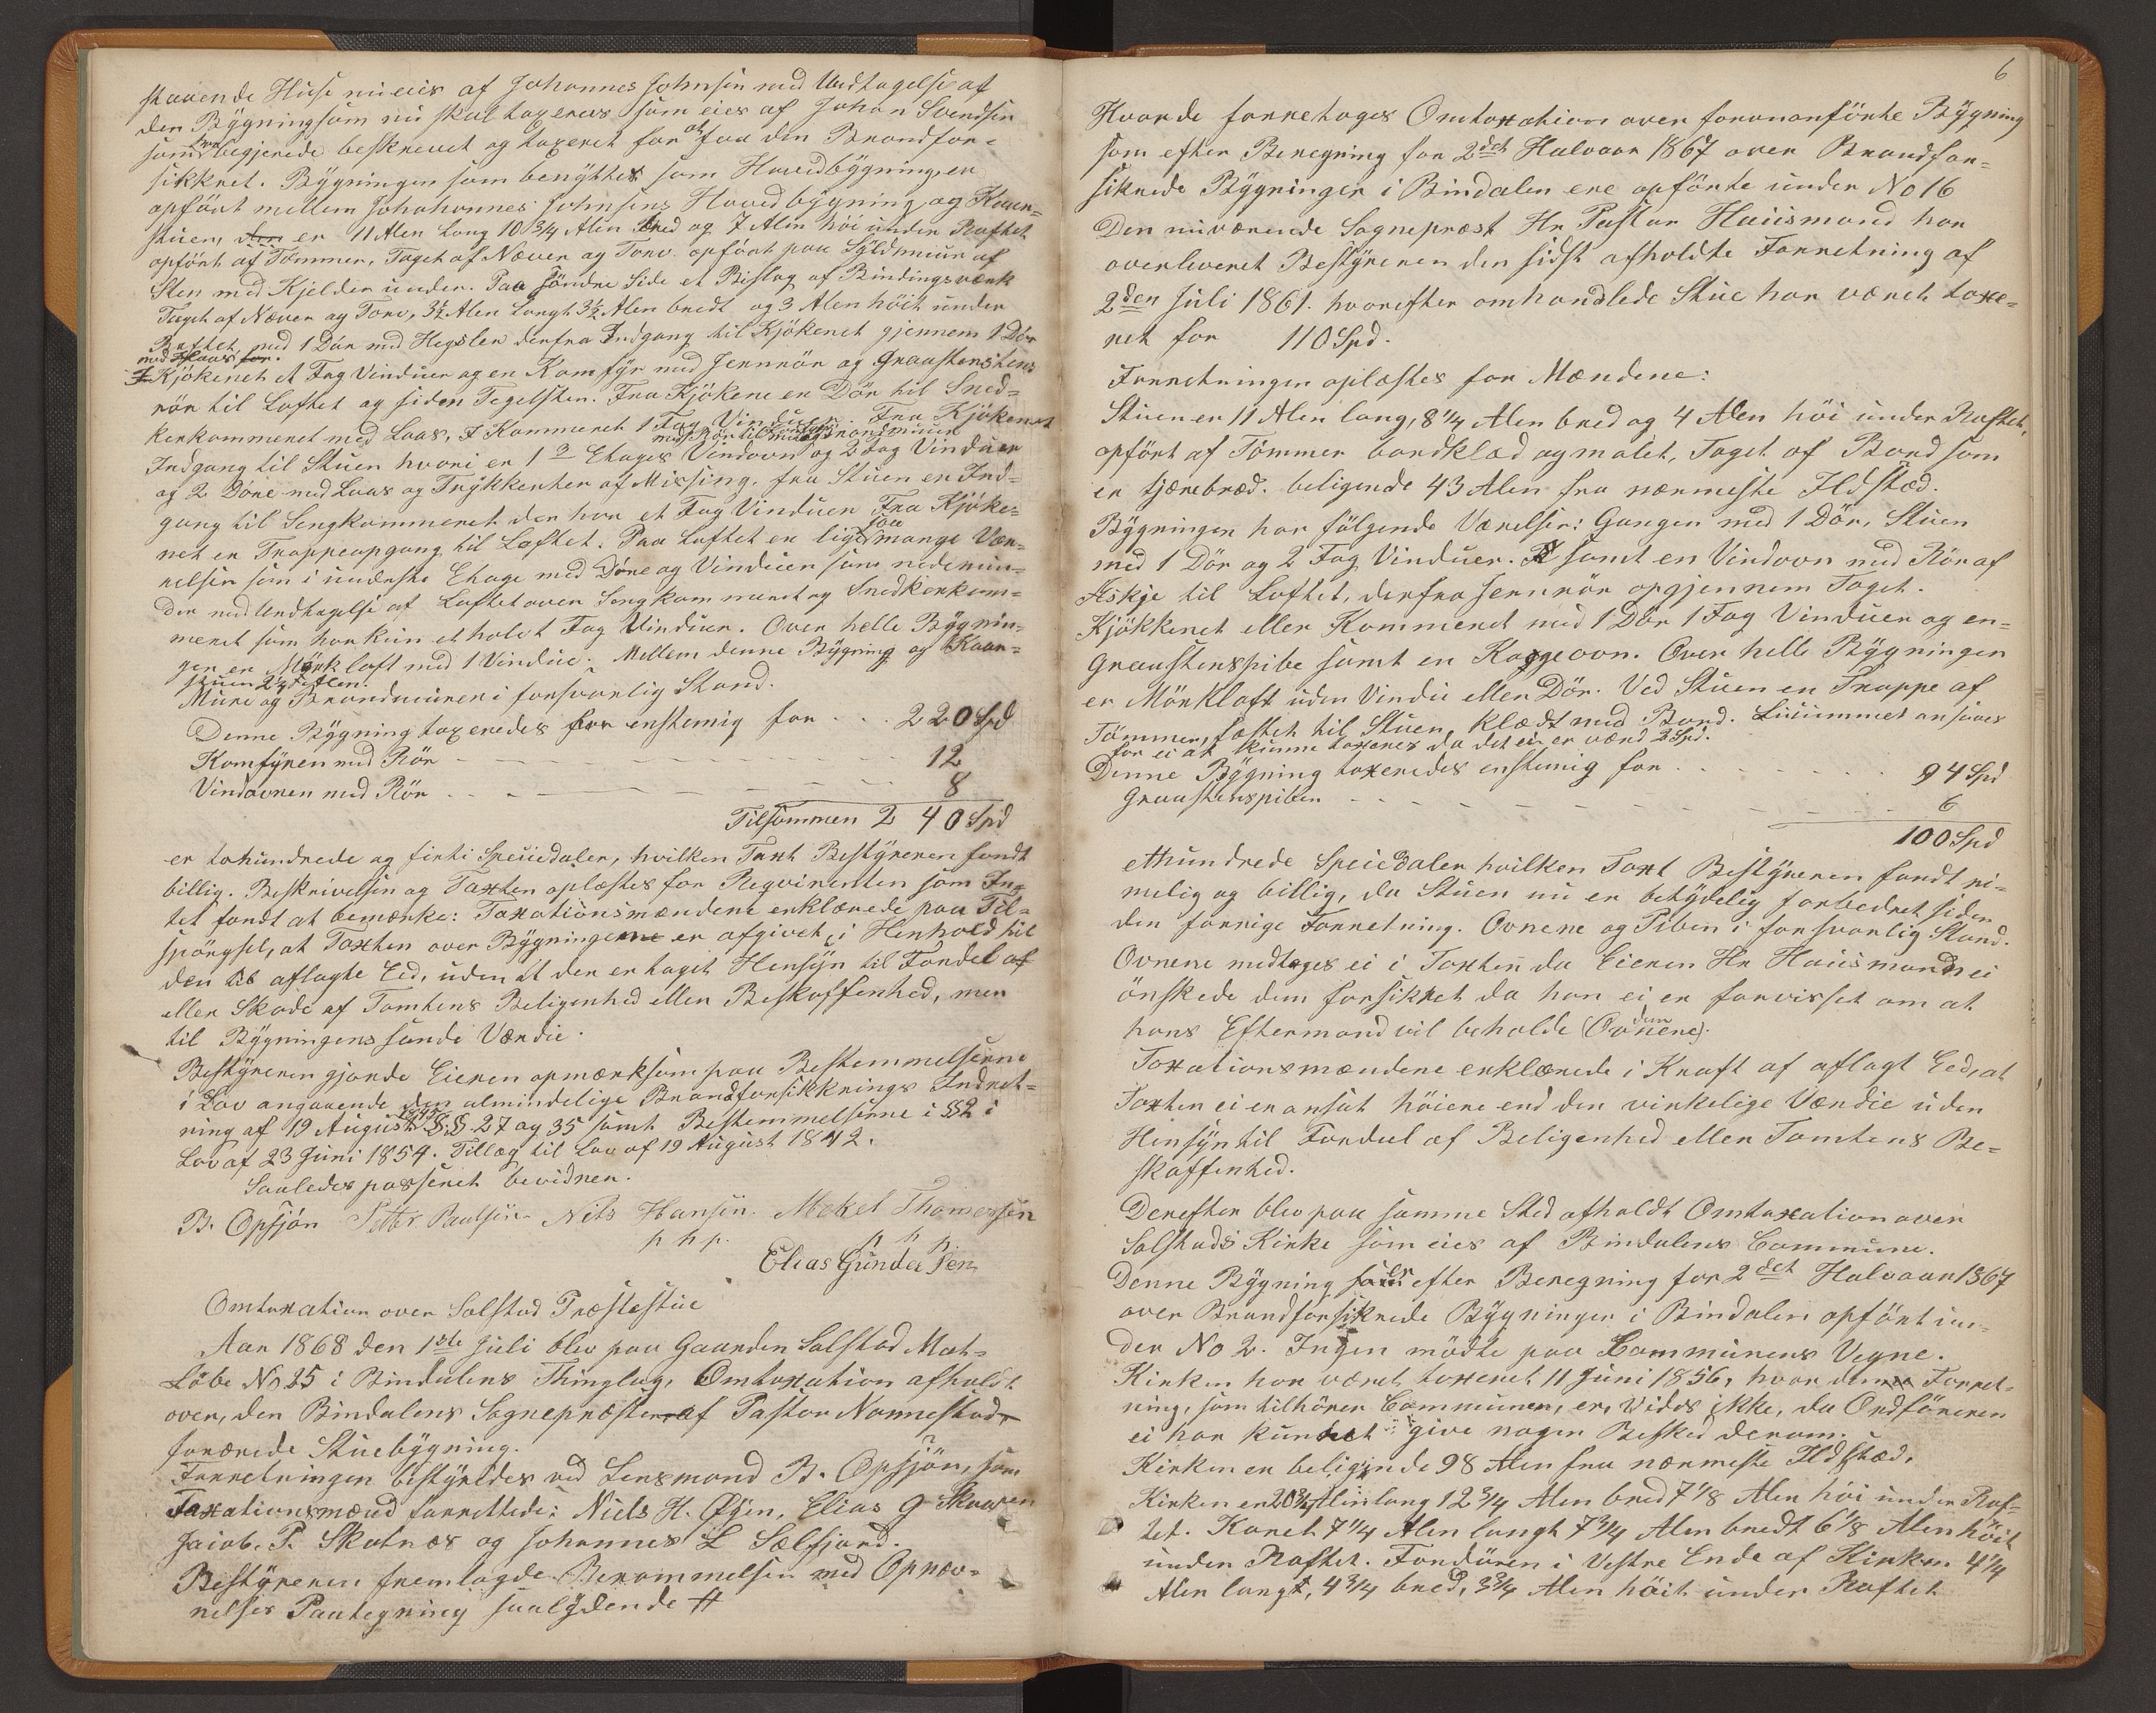 staaende Huse nu eies af Johannes Johnsen med Undtagelse af
den Bygning som nu skal taxeres som eies af Johan Svendsen
som han begjerede beskrevet og taxeret for at faa den Brandfor-
sikkret. Bygningen som benyttes som Hovedbygning, er
opfört mellem Johahannes Johnsens Hovedbygning og Kaar-
stuen, den er 11 Alen lang 10 3/4 Alen bred og 7 Alen höi under Raftet
opfört af Tömmer, Taget af Næver og Torv opfört paa Syldmuur af
Sten med Kjelder under. Paa söndre Side et Bislag af Bindingsværk
Taget af Næver og Torv, 3 1/2 Alen langt 3 1/2 Alen bredt og 3 Alen höit under
Raftet, med 1 Dör med Hegsler derfra Indgang til Kjökenet gjennem 1 Dör
med Laas for.
I Kjökenet et Fag Vinduer og en Komfyr med Jernrör og Graastens
rör til Loftet og siden Tegelsten. Fra Kjökene en Dör til Sned-
kerkammeret med Laas, I Kammeret 1 Fag Vinduer. Fra Kjökenet
Indgang til Stuen hvori er 1 2 Etages Vindovn og 2 Fag Vinduer
og 2 Döre med Laas og Trykkerter af Missing. fra Stuen en Ind-
gang til Sengkammeret der har et Fag Vinduer Fra Kjöke-
net er Trappeopgang til Loftet. Paa Loftet er lige saa mange Vær-
relser som i underste Etage med Döre og Vinduer som nedenun-
der med Undtagelse af Loftet over Sengkammeret og Snedkerkam-
meret som har kun et halvt Fag Vinduer. Over helle Bygnin-
gen er Mörkloft med 1 Vindue. Mellem denne Bygning og Kaar-
stuen 2 1/4 Alen.
Mure og Brandmuren i forsvarlig Stand.
Denne Bygning taxeredes for enstemig for . . . 220 Spd
Komfyren med Rör 12
Vindovnen med Rör 8
Tilsammen 240 Spd
er tohundrede og firti Speciedaler, hvilken Taxt Bestyreren fandt
billig. Beskrivelsen og Taxten oplæstes for Reqvirenten som In-
tet fandt at bemærke: Taxationsmændene erklærede paa Til-
spörgsel, at Taxten over Bygningerne er afgivet, i Henhold til
den aflagte Eed, uden at der er taget Hensyn til Fordel af
eller Skade af Tomtens Beligenhed eller Beskaffenhed, men
til Bygningens sande Værdie.
Bestyreren gjorde Eieren opmærksom paa Bestemmelserne
i Lov angaaende den almindelige Brandforsikkrings Indret-
ning af 19 August 1845 §.§ 27 og 35 samt Bestemmelserne i §2 i
Lov af 23 Juni 1854. Tillæg til Lov af 19 August 1842.
Saaledes passeret bevidner.
B. Opsjön Petter Paulsen. Nils Hansen. Mekel Thomessen
p h p. p h p.
Elias Gundersen
Omtaxation over Solstad Præstestue
Aar 1868 den 1ste Juli blev paa Gaarden Solstad Mat-
Löbe No 25 i Bindalens Thinglag, Omtaxation afholdt
over, den Bindalens Sognepræster af Pastor Normestad
forærede Stuebygning.
Forretningen bestyredes ved Lensmand B. Opsjön, som
Taxationsmænd forrettede: Niels H. Øgen, Elias G Skaaren
Jaiob. P. Skotnæs og Johannes L Sælfjord.
Bestyreren fremlagde Berammelsen med Opnæv-
nelses Paategning saalydende #
6
Hvorde forretages Omtaxation over forananförte Bygning
som efter Beregning for 2det Halvaar 1867 over Brandfor-
sikrede Bygninger i Bindalen ere opförte under No 16
Den nuværende Sognepræst Hr Pastor Haüsmand har
overleveret Bestyreren den sidst afholdte Forretning af
2den Juli 1861. hvorefter omhandlede Stue har været taxe-
ret for 110 Spd.
Forretningen oplæstes for Mændene:
Stuen er 11 Alen lang, 8 1/4 Alen bred og 4 Alen höi under Raftet,
opfört af Tömmer bordklæd og malet, Taget af Bord som
er tjærebræd. beligende 43 Alen fra nærmeste Ildstæd.
Bygningen har fölgende Værelser: Gangen med 1 Dör, Stuen
med 1 Dör og 2 Fag Vinduer. samt en Vindovn med Rör af
Æskje til Loftet, derfra Jernrör opgjennem Taget.
Kjökkenet eller Kammeret med 1 Dör 1 Fag Vinduer og en
Graastenspibe samt en Kaggeovn. Over helle Bygningen
er Mörkloft uden Vindu eller Dör. Ved Stuen en Trappe af
Tömmer, fæstet til Stuen, klædt med Bord. ansaaes
for ei at kunne taxeres da det ei er værd 2 Spd.
Denne Bygning taxeredes enstemig for 94 Spd
Graastenspiben 6
100 Spd
etthundrede Speiedaler hvilken Taxt Bestyreren fandt ri-
melig og billig, da Stuen nu er betydelig forbedret siden
den forrige Forretning. Ovnene og Piben i forsvarlig Stand.
Ovnene medtages ei i Taxten da Eieren Hr Haüsmand ei
önskede dem forsikret da han ei er forvisset om at
hans Eftermand vil beholde dem (Ovnene).
Taxationsmændene erklærede i Kraft af aflagt Eed, at
Taxten ei er ansat höiere end den virkelige Værdie uden
Hensyn til Fordeel af Beligenhed eller Tomtens Be-
skaffenhed.
Derefter blev paa samme Sted afholdt Omtaxation over
Solstads Kirke som eies af Bindalens Commune.
Denne Bygning er efter Beregning for 2det Halvaar 1867
over Brandforsikrede Bygninger i Bindalen opfört un-
der No 2. Ingen mödte paa Communens Vegne.
Kirken har været taxeret 11 Juni 1856, hvor denne Forret-
ning, som tilhörer Communen, er, vides ikke, da Ordföreren
ei har kundet give nogen Besked derom.
Kirken er beligende 98 Alen fra nærmeste Ildstæd,
Kirken er 20 3/4 Alen lang 12 3/4 Alen bred 7 1/8 Alen höi under Raf-
tet. Koret 7 1/4 Alen langt 7 3/4 Alen bredt 6 1/8 Alen höit
under Raftet. Fordören i Vestre Ende af Kirken 4 1/4
Alen langt, 4 3/4 bred, 3 3/4 Alen höit under Raftet